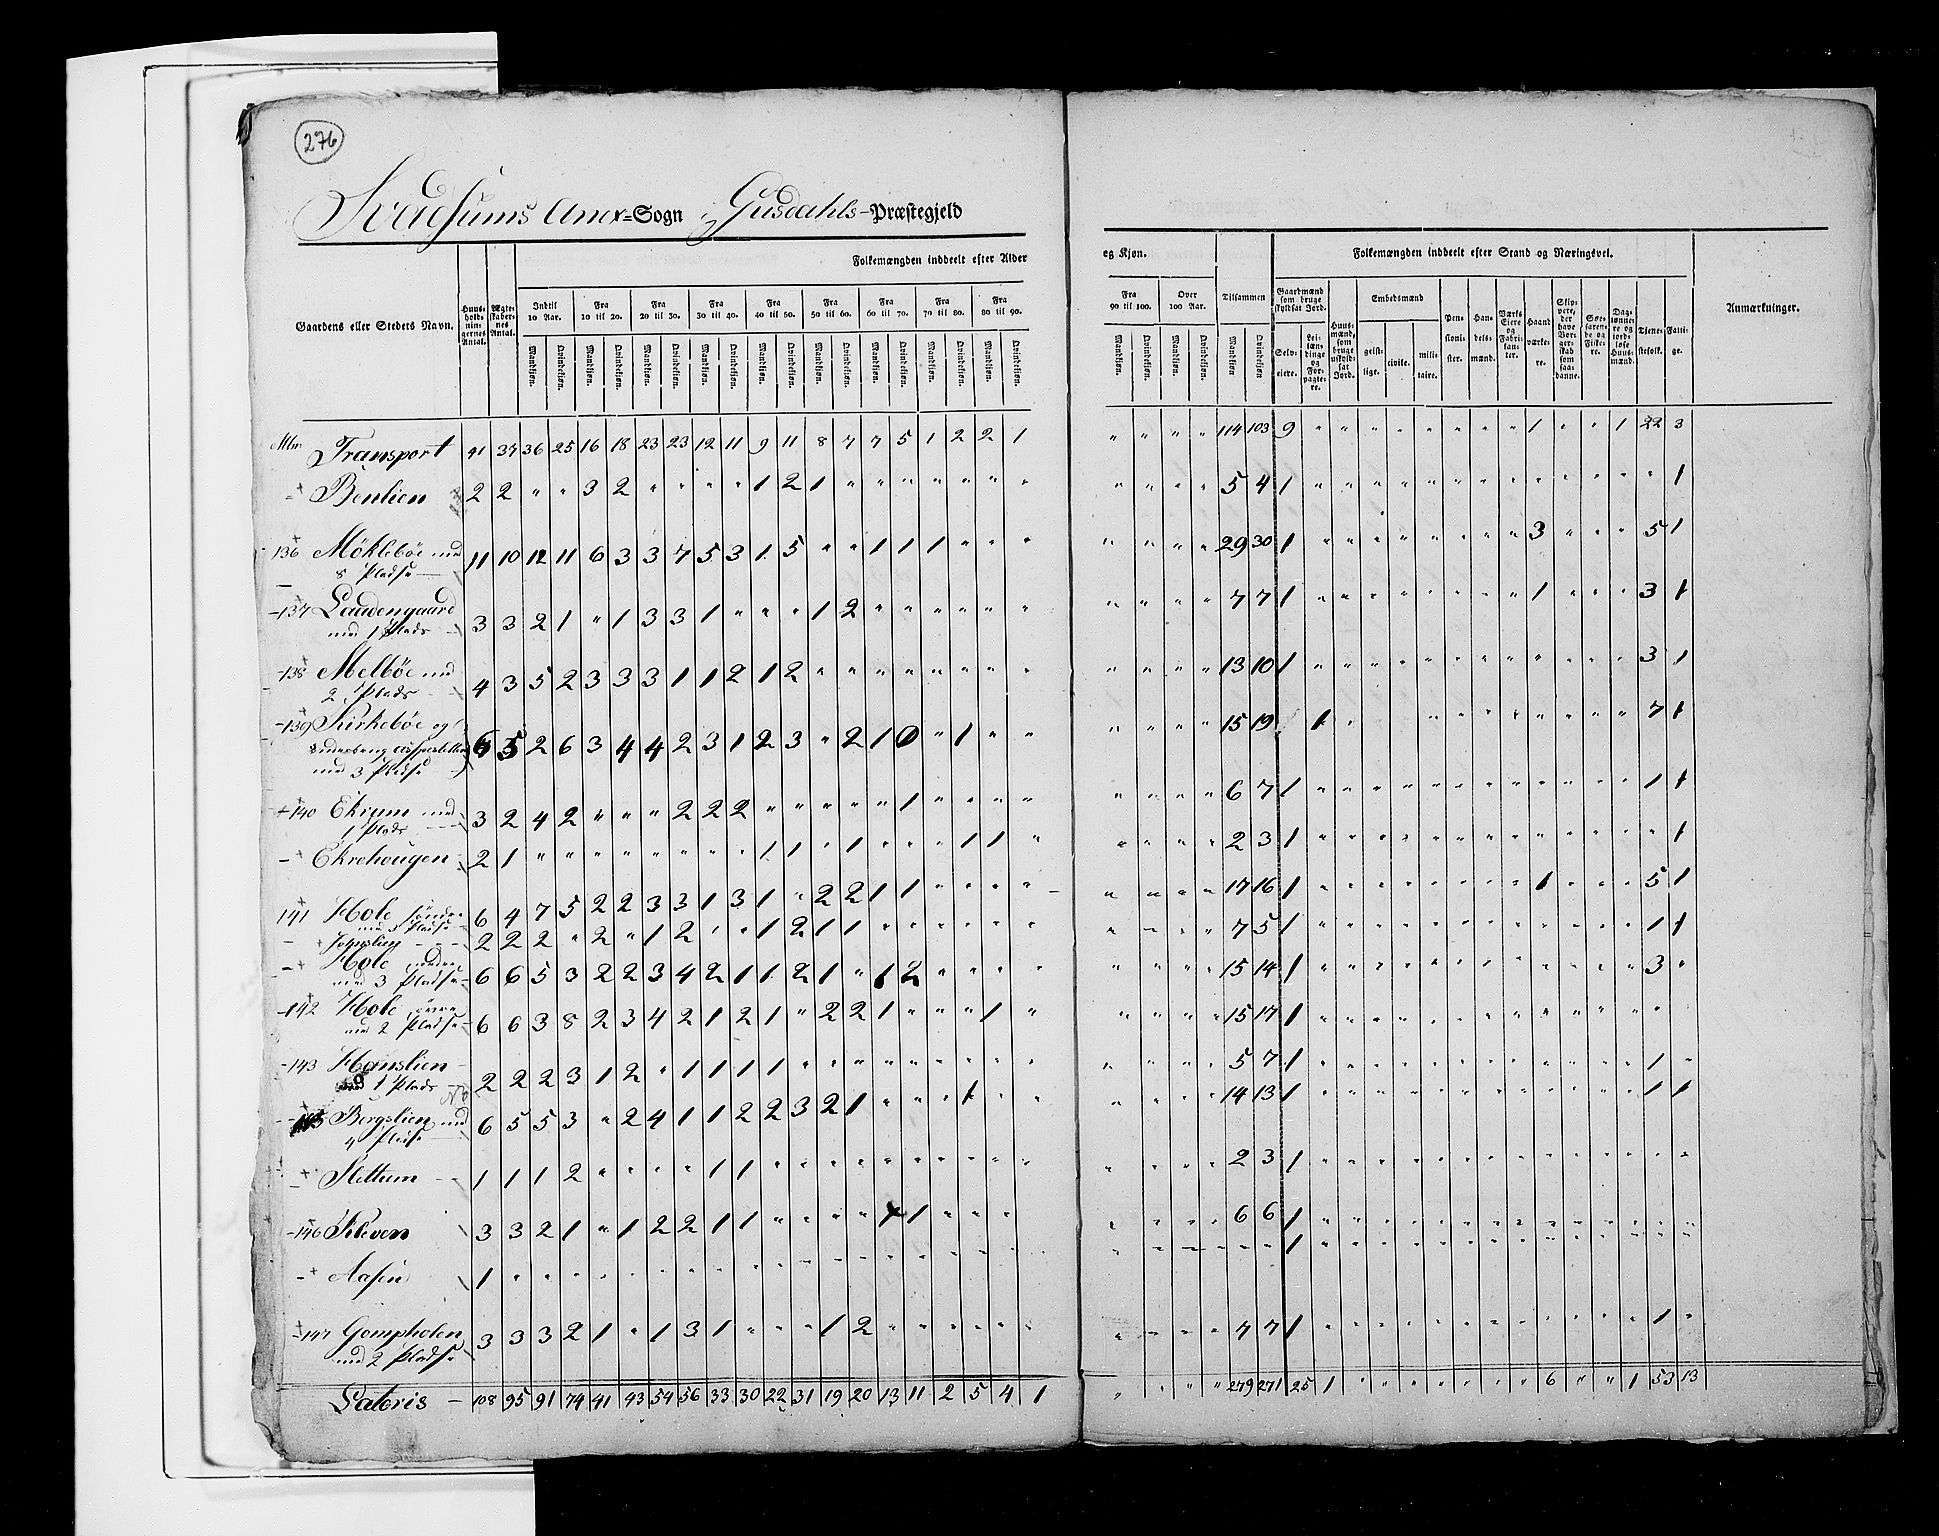 276
Svadsums Anex=Sogn i Gusdahls-Præstegjeld
Folkemængden inddeelt efter Alder
eg Kjøn.
Folkemængden inddeelt efter Stand og Næringsvei.
Gaardens eller Stedets Navn.
Huusholdningernes Antal.
Ægteskabernes Antal.
Indtil 10 Aar.
Fra 10 til 20.
Fra 20 til 30.
Fra 30 til 40.
Fra 40 til 50.
Fra 50 til 60.
Fra 60 til 70.
Fra 70 til 80.
Fra 80 til 90.
Fra 90 til 100.
Over 100 Aar.
Tilsammen
Mandkjøn. Qvindekjøn.
Gaardmænd som bruge skyldsat Jord.
Selveiere.
Leilændinge og Forpagtere.
Huusmænd, som bruge uskyldsat Jord.
Embedsmænd
geistlige. civile. militaire.
Pensionister.
Handelsmænd.
Værks Eiere og Fabrikanter.
Haandværkere.
Skippere, der have Borgerskab som saadanne.
Søefarende og Fiskere.
Daglønnere og jordløse Huusmænd.
Tjenestefolk.
Fattige.
Anmærkninger.
Transport 41 37 36 25 16 18 23 23 12 11 9 11 8 7 7 5 1 2 2 1 " " " " 114 103 9 " " " " " " " " 1 " " 1 22 3
Benlien 2 2 " " 3 2 " " " " 1 2 1 " " " " " " " " " " " 5 4 1 " " " " " " " " " " " " " 1
136 Møklebøe med 8 Pladse 11 10 12 11 6 3 3 7 5 3 1 5 " " 1 1 1 " " " " " " " 29 30 1 " " " " " " " " 3 " " " 5 1
137 Laudengaard med 1 Plads 3 3 2 1 " 1 3 3 1 " " " 1 2 " " " " " " " " " " 7 7 1 " " " " " " " " 1 " " " 3 1
138 Melbøe med 2 Plads 4 3 5 2 3 3 3 1 1 2 1 2 " " " " " " " " " " " " 13 10 1 " " " " " " " " " " " " 3 1
139 Kirkebøe og
med 3 Pladse 6 5 2 6 3 4 4 2 3 1 2 3 " 2 1 0 " 1 " " " " " " 15 19 1 " " " " " " " " " " " 7 1
140 Ekrum med 1 Plads 3 2 4 2 " " " 2 2 2 " " " " " 1 " " " " " " " " 6 7 1 " " " " " " " " " " " " 1 1
Ekrehougen 2 1 " " " " " " " " 1 1 " 1 " " " 1 1 " " " " " 2 3 1 " " " " " " " " " " " " " 1
141 Hole søndre med 3 Pladse 6 4 7 5 2 2 3 3 1 3 1 " 2 2 1 1 " " " " " " " " 17 16 1 " " " " " " " " 1 " " " 5 1
Johnslien 2 2 2 " 2 " 1 2 " " 1 2 1 1 " " " " " " " " " " 7 5 1 " " " " " " " " " " " " 1 1
Hole nordre med 3 Pladse 6 6 5 3 2 2 3 4 2 1 1 2 1 " 1 2 " " " " " " " " 15 14 1 " " " " " " " " " " " " 3 "
142 Hole øvre med 2 Pladse 6 6 3 8 2 3 4 2 1 2 1 " 2 2 1 " " " 1 " " " " " 15 17 1 " " " " " " " " " " " " " "
143 Hanslien 1 Plads 2 2 2 3 1 2 " 1 1 1 1 " " " " " " " " " " " " 5 7 1 " " " " " " " " " " " " 1 "
145 Bergslien med 4 Pladse 6 5 5 3 " 2 4 1 1 2 2 3 2 1 " " " 1 " " " " " " 14 13 1 " " " " " " " " " " " " 1 1
Slettum 1 1 1 2 " " " " 1 1 " " " " " " " " " " " " " " 2 3 1 " " " " " " " " " " " " " "
146 Kleven 3 3 2 1 " 1 2 2 1 1 " " " " 1 1 " " " " " " " " 6 6 1 " " " " " " " " " " " " " "
Aasen 1 " " " " " " " " " " " " " " " " " " " " " " " " " 1 " " " " " " " " " " " " " "
147 Gompholen med 2 Pladse 3 3 3 2 1 " 1 3 1 " " " 1 2 " " " " " " " " " " 7 7 1 " " " " " " " " " " " " 1 "
Lateris 108 95 91 74 41 43 54 56 33 30 22 31 19 20 13 11 2 5 4 1 " " " " 279 271 25 1 " " " " " " " 6 " " 1 53 13